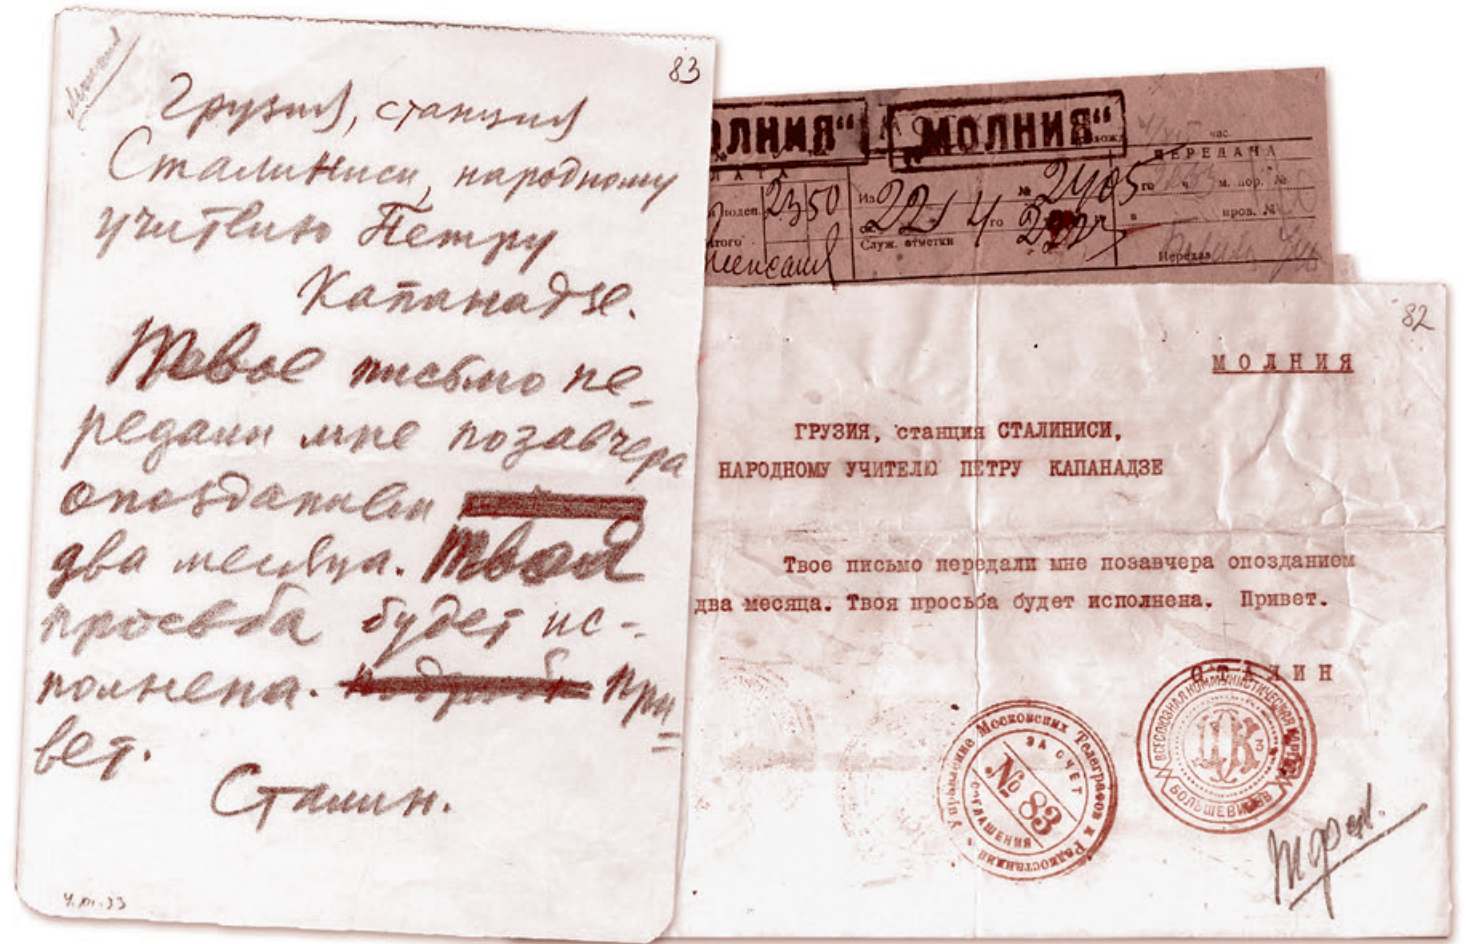 83
Грузия, станция
Сталиниси, народному
учителю Петру
Капанадзе.
Твое письмо пе-
редали мне позавчера
опозданием
два месяца. Твоя
просьба будет ис-
полнена. При
вет.
Сталин.
4.XII.33
„МОЛНИЯ“ „МОЛНИЯ“
час.
ПЕРЕДАЧА
ЛАТА
подеп. 23 50
Из № 2405
го ч. м. пор. №
221 4 го
в пров. №
Итого
Служ. отметки
Передал
82
МОЛНИЯ
ГРУЗИЯ, станция СТАЛИНИСИ,
НАРОДНОМУ УЧИТЕЛЮ ПЕТРУ КАПАНАДЗЕ
Твое письмо передали мне позавчера опозданием
два месяца. Твоя просьба будет исполнена. Привет.
СТАЛИН
Управление Московских Телеграфов и Радиостанций
ЗА СЧЕТ
№ 83
СОГЛАШЕНИЯ
ВСЕСОЮЗНАЯ КОММУНИСТИЧЕСКАЯ ПАРТИЯ
ЦК
3
БОЛЬШЕВИКОВ